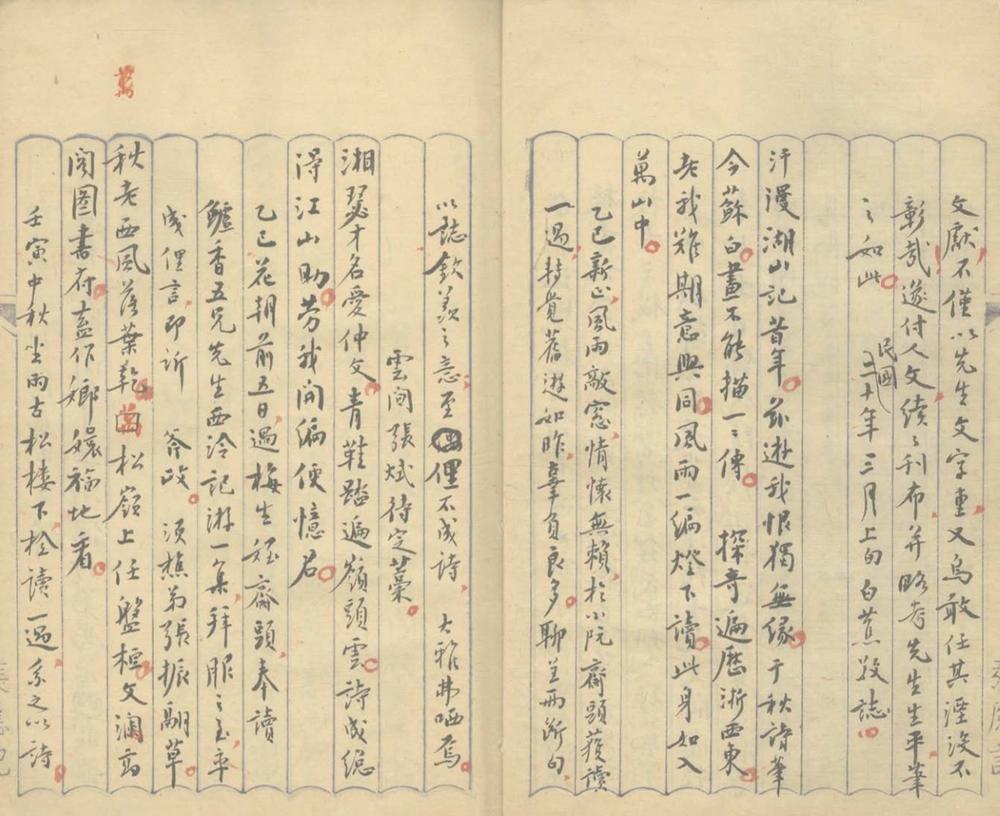 文獻不僅以先生文字重又烏敢任其湮沒不
彰哉遂付人文續之刊布并略考先生生平崖
之如此
民國
三十年三月上旬白蕉敬誌
汗漫湖山記昔年茲遊我恨獨無緣于秋詩筆
今蘇白畫不能描一一傳 探奇遍歷浙西東
老我難期意興同風雨一編燈下讀此身如入
萬山中
乙巳新正風雨敲窓情懷無賴於小阮齋頭獲讀
一過轉覺舊遊如昨辜負良多聊呈兩斷句
以誌欽羨之意至俚不成詩 大雅弗哂焉
雲間張斌待定藁
湘瑟才名愛仲文青鞋踏遍嶺頭雲詩成總
得江山助勞我開編便憶君
乙巳花朝前五日過梅生姪齋頭奉讀
鱸香五兄先生西泠記游一集拜服之至率
成俚言即訴 答政 須樵弟張振翮草
萬
秋老西風落葉乾萬松嶺上任盤桓文瀾高
閣圖書府盍作嫏嬛福地看
壬寅中秋坐雨古松樓下栓讀一過系之以詩